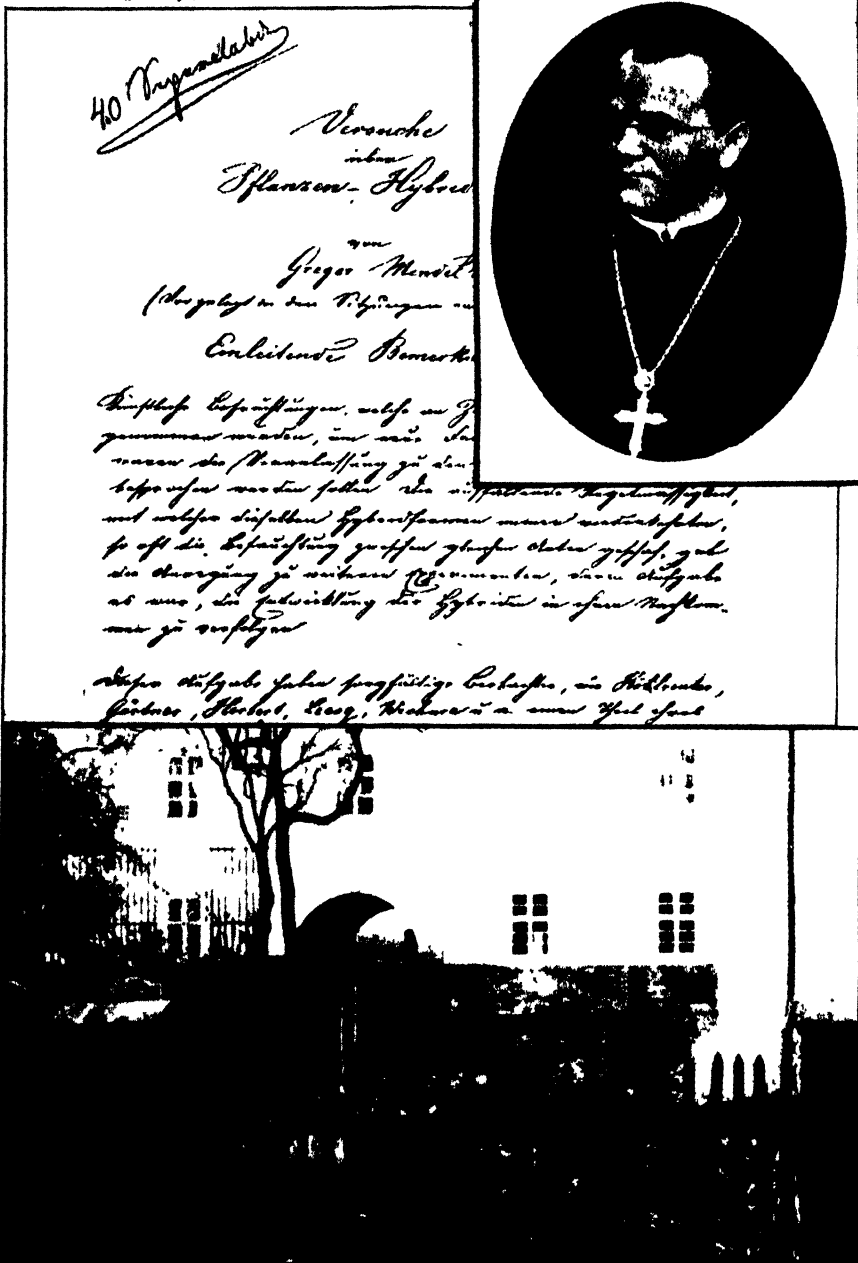 40 Separatabdr.
Versuche
über
Pflanzen-Hybrid
von
Gregor Mendel
(Vorgelegt in den Sitzungen
Einleitende Bemerk
Künstliche Befruchtungen, welche an Z
genommen wurden, um neue Fa
waren die Veranlassung zu den
besprochen werden sollen. Die auffallende Regelmässigkeit,
mit welcher dieselben Hybridformen immer wiederkehrten,
so oft die Befruchtung zwischen gleichen Arten geschah, gab
die Anregung zu weiteren Experimenten, deren Aufgabe
es war, die Entwicklung der Hybriden in ihren Nachkom-
men zu verfolgen
Dieser Aufgabe haben sorgfältige Beobachter, wie Kölreuter,
Gärtner, Herbert, Lecoq, Wichura u. a. einen Theil ihres